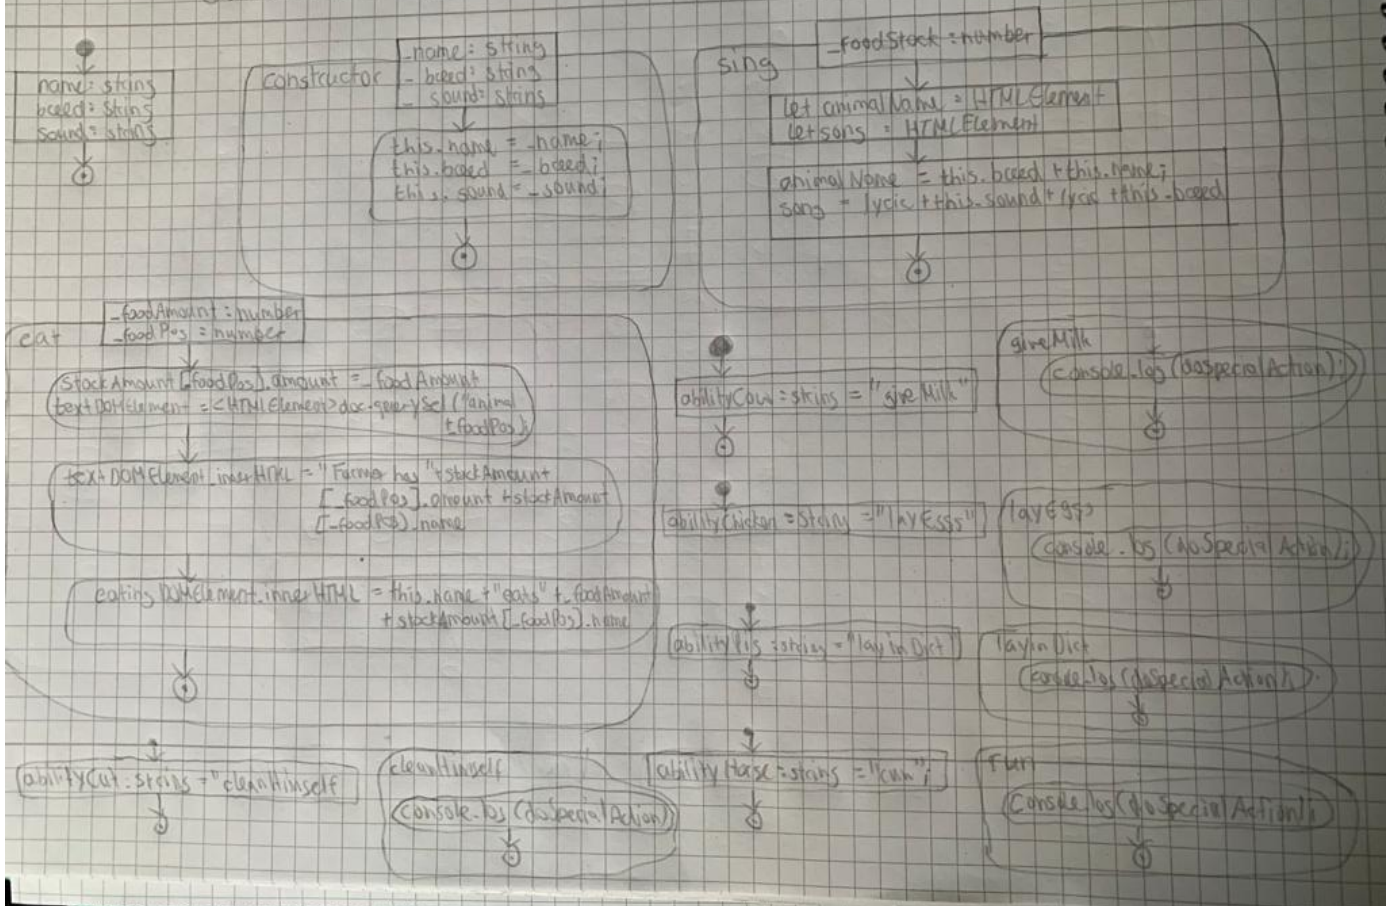 name: string
breed: string
sound: string
constructor
_name: string
_ breed: string
_ sound: string
this.name = _name;
this.breed = _breed;
this.sound = _sound;
sing
_foodStock : number
let animalName = HTMLElement
let song = HTMLElement
animalName = this.breed + this.name;
song = lyric + this.sound + lyric + this.breed
eat
_foodAmount : number
_foodPos : number
stockAmount [_foodPos].amount = _foodAmount
textDOMElement = <HTMLElement> doc.querySel ("animal
+_foodPos);
textDOMElement.innerHTML = "Farmer has" + stockAmount
[_foodPos].amount + stockAmount
[_foodPos].name
eatingDOMElement.innerHTML = this.name + "eats" + _foodAmount
+ stockAmount [_foodPos].name
abilityCow : string = "giveMilk"
giveMilk
console.log (doSpecialAction);
abilityChicken = String = "layEggs"
layEggs
console.log (doSpecialAction);
abilityPig : string = "lay in Dirt"
layinDirt
console.log (doSpecialAction);
abilityCat : string = "cleanHimself
cleanHimself
console.log (doSpecialAction)
abilityHorse : string = "run";
run
console.log (doSpecialAction);